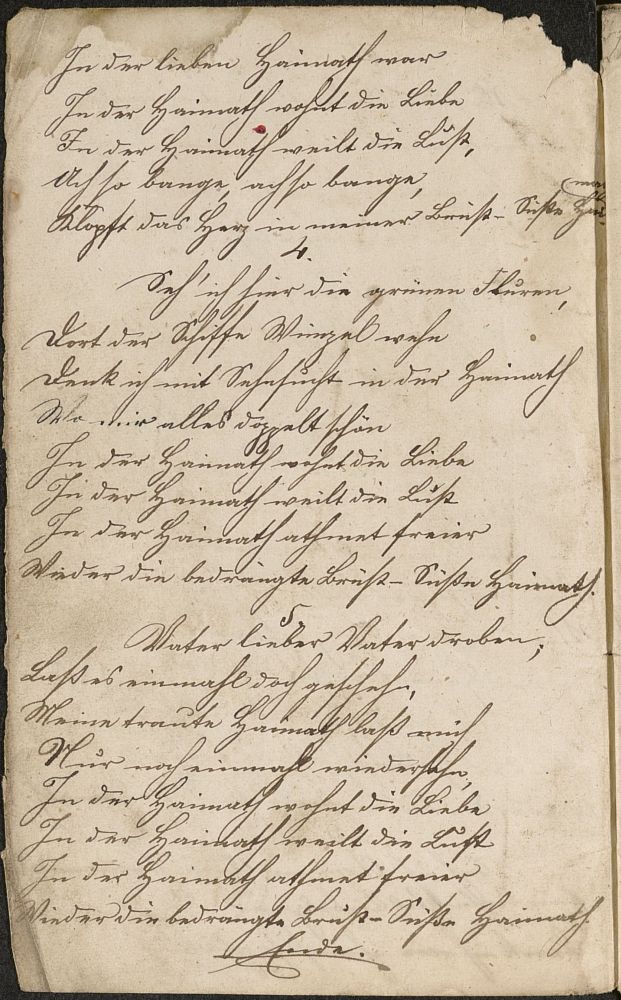 In der lieben Haimath war
In der Haimath wohnt die Liebe
In der Haimath weilt die Lust,
Ach so bange, ach so bange,
Klopft das Herz in meiner Brust - Süße Hai-
math
4.
Seh' ich hier die grünen Fluren,
Dort der Schiffe Wimpel wehn
Denk ich mit Sehnsucht in der Haimath
Wo mir alles doppelt schön
In der Haimath wohnt die Liebe
In der Haimath weilt die Lust
In der Haimath athmet freier
Wieder die bedrängte Brust - Süße Haimath.
5.
Vater lieber Vater droben,
Laß es einmahl doch geschehn,
Meine traute Haimath laß mich
Nur noch einmahl wiedersehn,
In der Haimath wohnt die Liebe
In der Haimath weilt die Lust
In der Haimath athmet freier
Wieder die bedrängte Brust - Süße Haimath.
Ende.